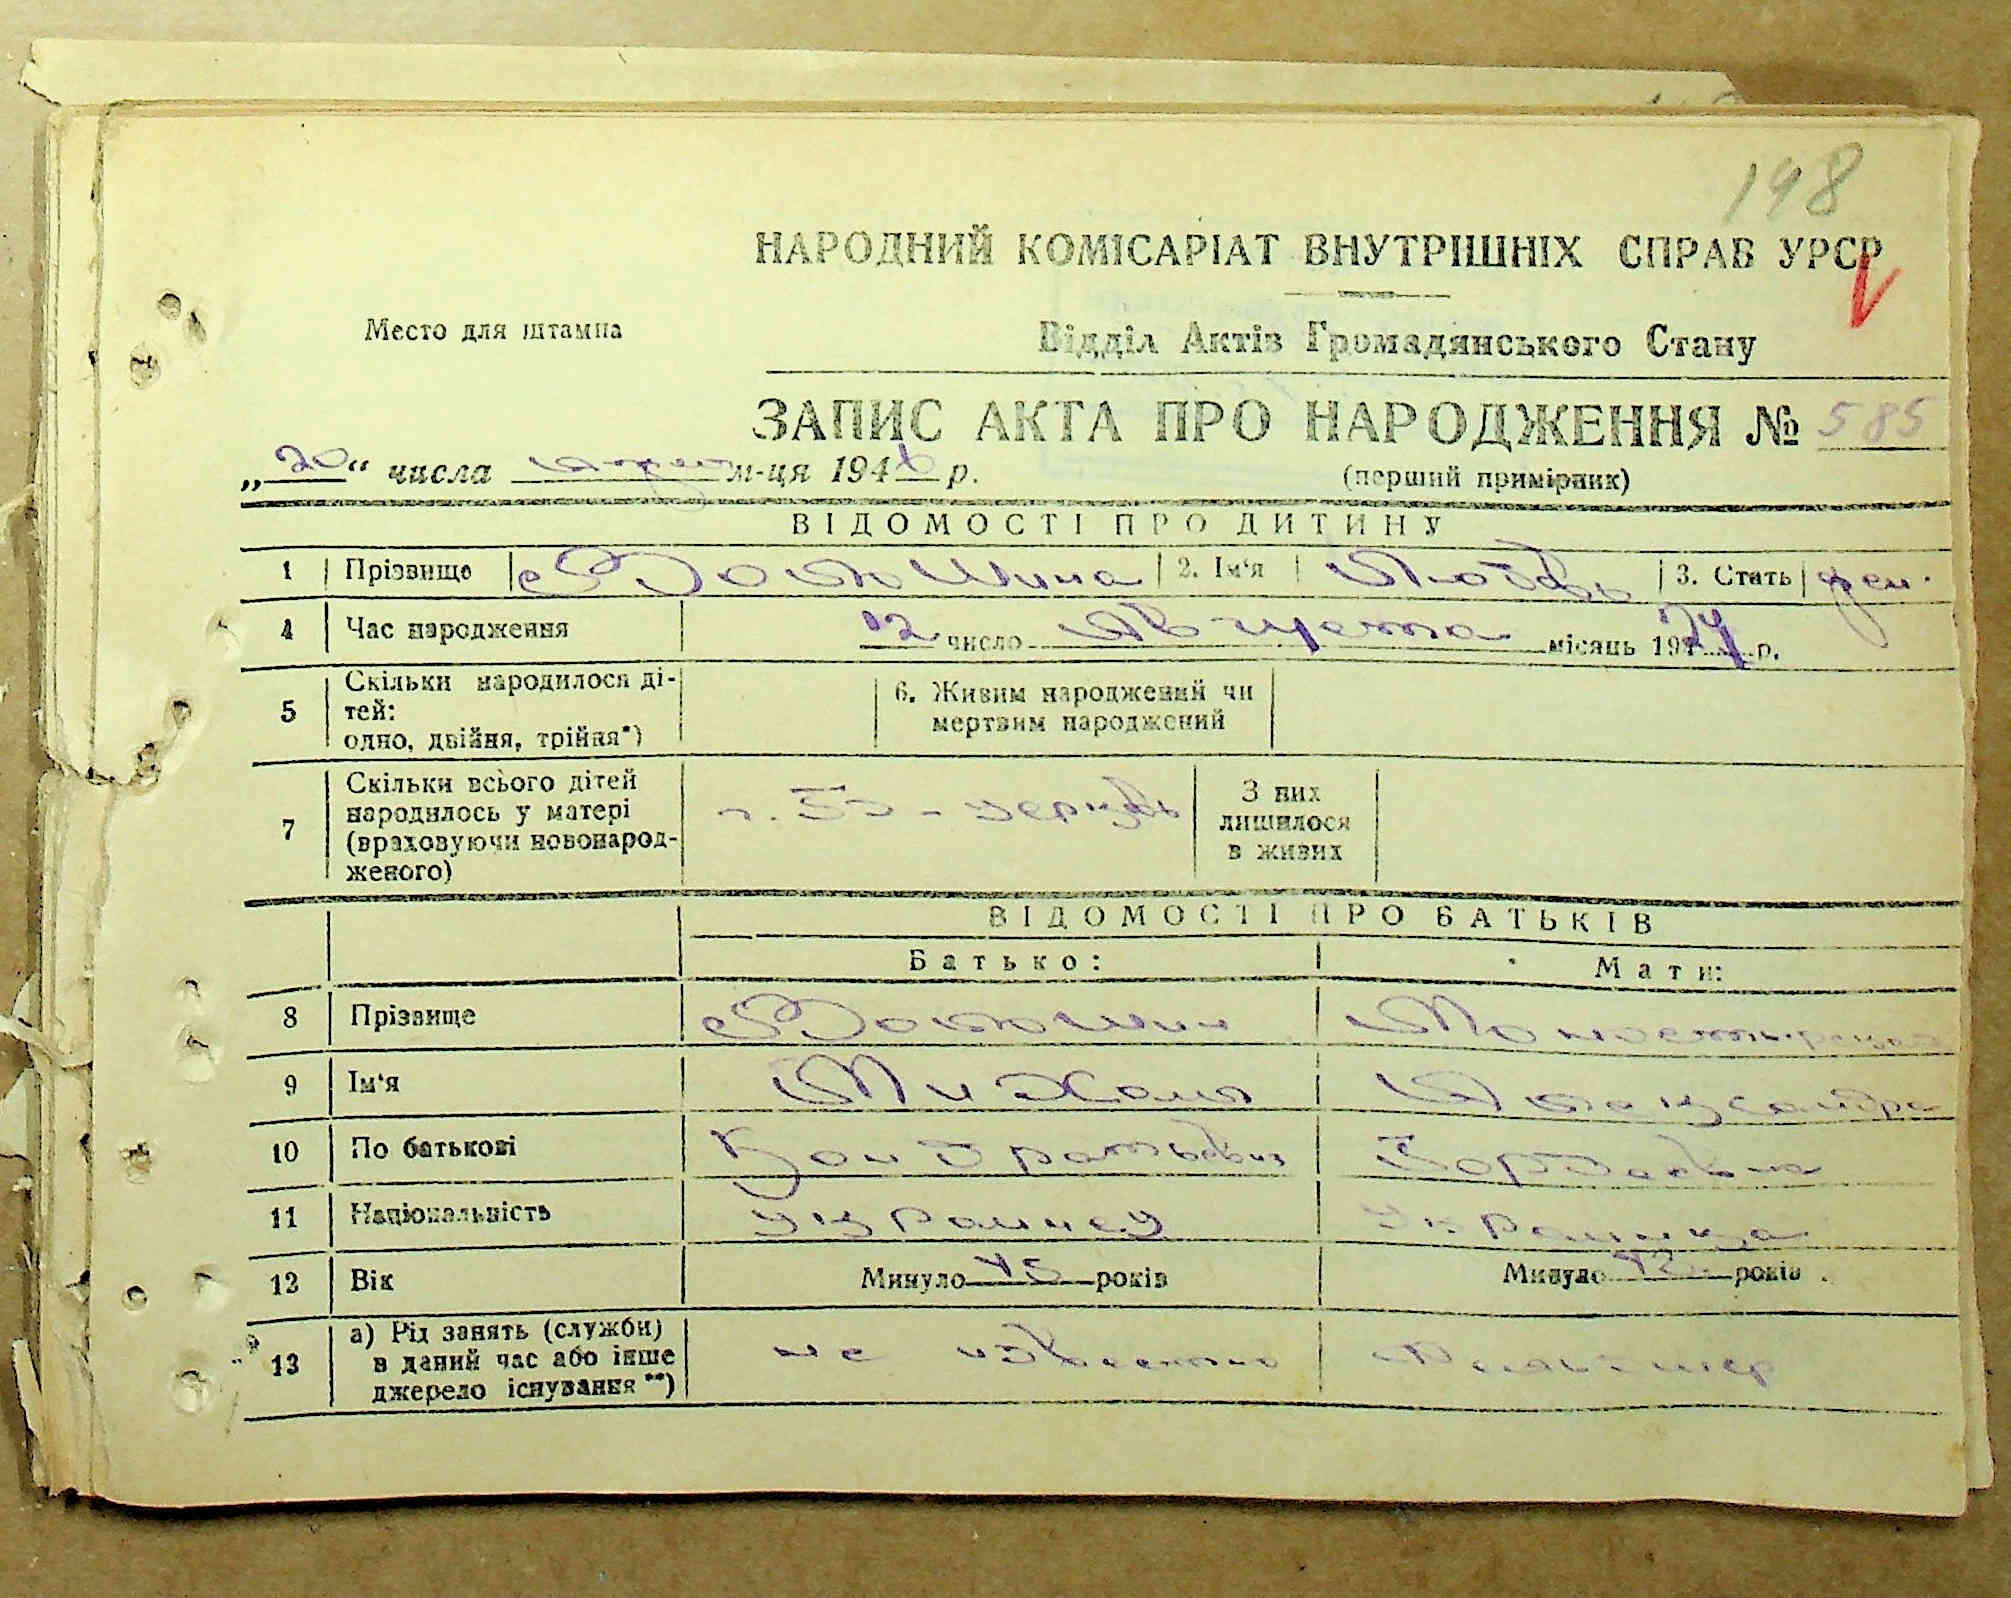 198
НАРОДНИЙ КОМІСАРІАТ ВНУТРІШНІХ СПРАВ УРСР
Место для штампа
Відділ Актів Громадянського Стану
ЗАПИС АКТА ПРО НАРОДЖЕННЯ № 585
„20“ числа м-ця 1946 р.
(перший примірник)
ВІДОМОСТІ ПРО ДИТИНУ
1 Прізвище 2. Ім'я Любовь 3. Стать жен.
4 Час народження 12 число Августа місяць 1924 р.
5 Скільки народилося ді-
тей:
одно, двійня, трійня*)
6. Живим народжений чи
мертвим народжений
7 Скільки всього дітей
народилось у матері
(враховуючи новонарод-
женого)
З них
лишилося
в живих
ВІДОМОСТІ ПРО БАТЬКІВ
Батько: Мати:
8 Прізвище Монастырская
9 Ім'я Михаил Александра
10 По батькові Кондратьевич Гордеевна
11 Національність Украинец Украинка
12 Вік Минуло 45 років Минуло 42 років
13 а) Рід занять (служби)
в даний час або інше
джерело існування **)
не известно Фельдшер